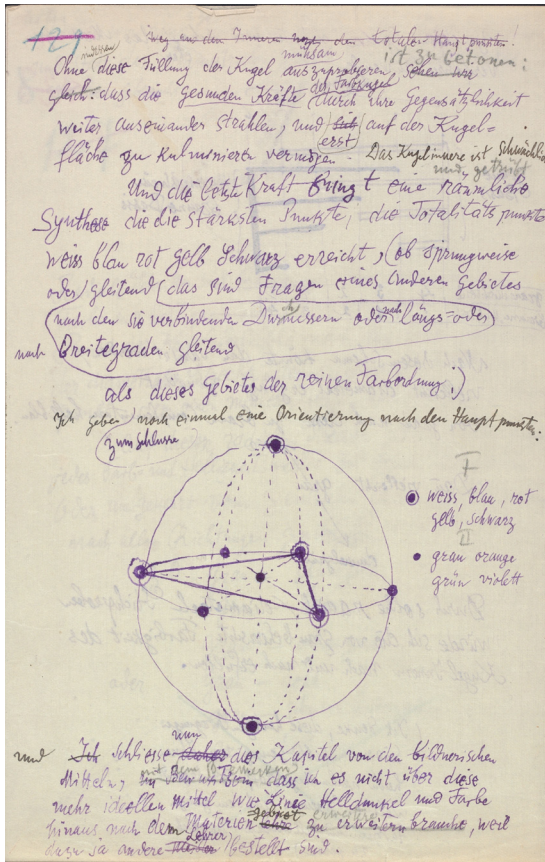 129
weg zu den Inneren nach den totalen Hauptpunkten.
ist zu betonen:
Ohne diese Füllung der Kugel mühsam auszuprobieren, sehen wir
gleich: dass die gesunden Kräfte der Farbkugel durch ihre Gegensätzlichkeit
weiter auseinander strahlen, und sich erst auf der Kugel=
fläche zu kulminieren vermögen. Das Kugelinnere ist schwächlich
und getrübt
Und die letzte Kraft bringt eine räumliche
Synthese die die stärksten Punkte, die Totalitätspunkte
weiss blau rot gelb schwarz erreicht, (ob sprungweise
oder gleitend (das sind Fragen eines anderen Gebietes
nach den sie verbindenden Durchmessern oder nach längs= oder
nach Breitegraden gleitend
als dieses Gebietes der reinen Farbordnung:)
Ich gebe noch einmal eine Orientierung nach den Hauptpunkten:
zum Schlusse
I
weiss, blau, rot
gelb, schwarz
II
grau orange
grün violett
und Ich schliesse nun daher dies Kapitel von den bildnerischen
Mitteln, mit dem Bemerken dass ich es nicht über diese
mehr ideellen Mittel wie Linie Helldunkel und Farbe
hinaus nach dem Materien gebiet lehre zu erweitern brauche, weil
dazu ja andere Lehrer bestellt sind.